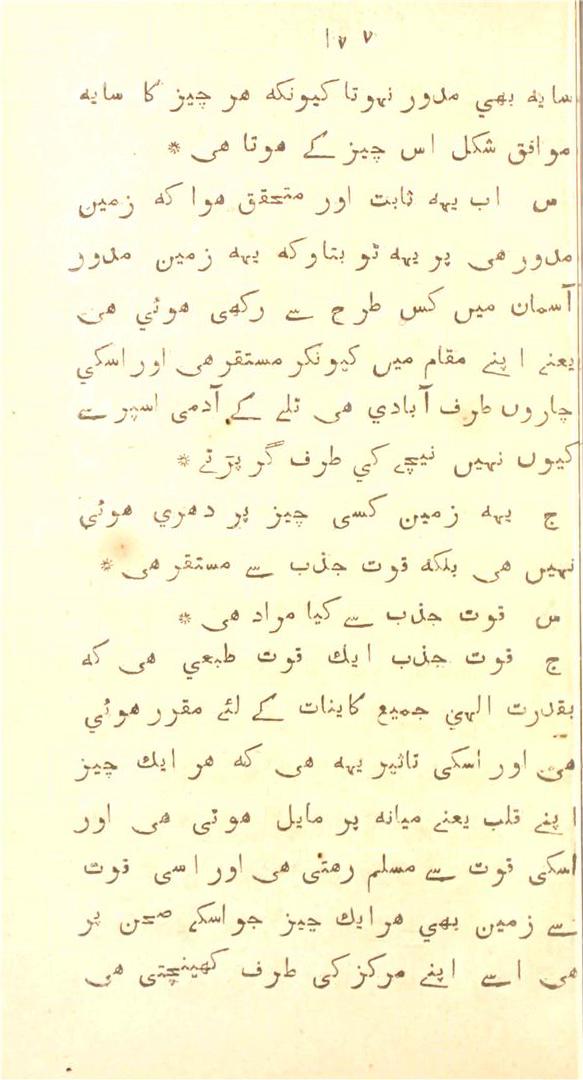 ۱۷۷
سایه بهي مدور نہوتا کیونکه هر چیز کا سایه
موافق شکل اس چیز کے هوتا هی *
س اب یهه ثابت اور متحقق هوا که زمین
مدور هی پر یهه تو بتاوکه یهه زمین مدور
آسمان میں کس طرح سے رکهی هوئي هی
یعنے اپنے مقام میں کیونکر مستقر هی اور اسکي
چاروں طرف آبادي هی تلے کے آدمی اسپر سے
کیوں نہیں نیچے کي طرف گر پڑتے *
ج یهه زمین کسی چیز پر دهري هوئي
نہیں هی بلکه قوت جذب سے مستقر هی *
س قوت جذب سے کیا مراد هی *
ج قوت جذب ایك قوت طبعي هی که
بقدرت الہي جمیع کاینات کے لئے مقرر هوئي
هی اور اسکی تاثیر یهه هی که هر ایك چیز
اپنے قلب یعنے میانه پر مایل هوتی هی اور
اسکی قوت سے مسلم رهتی هی اور اسی قوت
سے زمین بهي هر ایك چیز جو اسکے صحن پر
هی اسے اپنے مرکز کی طرف کهینچتی هی